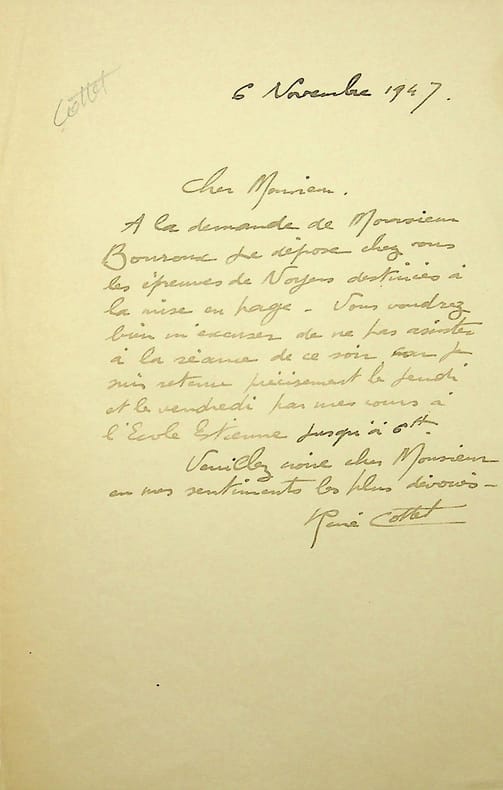 Cottet
6 Novembre 1947.
Cher Monsieur.
A la demande de Monsieur
Bouroux je dépose chez vous
les épreuves de Noyers destinées à
la mise en page - Vous voudrez
bien m'excuser de ne pas assister
à la séance de ce soir, car je
suis retenu précisement le Jeudi
et le vendredi par mes cours à
l'Ecole Estienne jusqu'à 6H.
Veuillez croire cher Monsieur
en mes sentiments les plus dévoués -
René Cottet